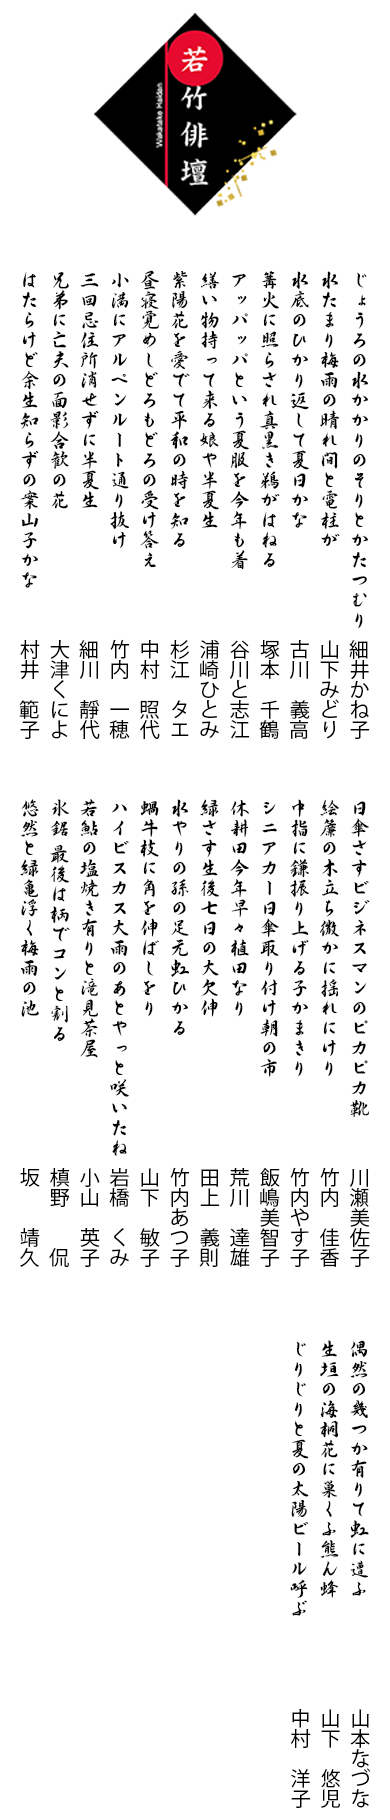 若竹俳壇
Wakatake Haidan
じょうろの水かかりのそりとかたつむり 細井かね子
水たまり梅雨の晴れ間と電柱が 山下みどり
水底のひかり返して夏日かな 古川 義高
篝火に照らされ真黒き鵜がはねる 塚本 千鶴
アッパッパという夏服を今年も着 谷川と志江
繕い物持って来る娘や半夏生 浦崎ひとみ
紫陽花を愛でて平和の時を知る 杉江 タエ
昼寝覚めしどろもどろの受け答え 中村 照代
小満にアルペンルート通り抜け 竹内 一穂
三回忌住所消せずに半夏生 細川 靜代
兄弟に亡夫の面影合歓の花 大津くによ
はたらけど余生知らずの案山子かな 村井 範子
日傘さすビジネスマンのピカピカ靴 川瀬美佐子
絵簾の木立ち微かに揺れにけり 竹内 佳香
中指に鎌振り上げる子かまきり 竹内やす子
シニアカー日傘取り付け朝の市 飯嶋美智子
休耕田今年早々植田なり 荒川 達雄
緑さす生後七日の大欠伸 田上 義則
水やりの孫の足元虹ひかる 竹内あつ子
蝸牛枝に角を伸ばしをり 山下 敏子
ハイビスカス大雨のあとやっと咲いたね 岩橋 くみ
若鮎の塩焼き有りと滝見茶屋 小山 英子
氷鋸最後は柄でコンと割る 槙野 侃
悠然と緑亀浮く梅雨の池 坂 靖久
偶然の幾つか有りて虹に遭ふ 山本なづな
生垣の海桐花に巣くふ熊ん蜂 山下 悠児
じりじりと夏の太陽ビール呼ぶ 中村 洋子